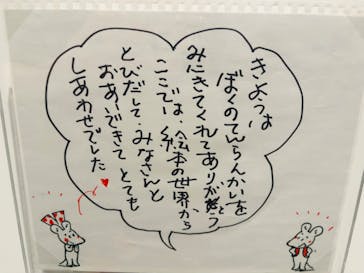 きょうは
ぼくのてんらんかいを
みにきてくれてありが冬う
とう
ここでは、絵本の世界から
とびだして、みなさんと
おあいできて、とても
しあわせでした